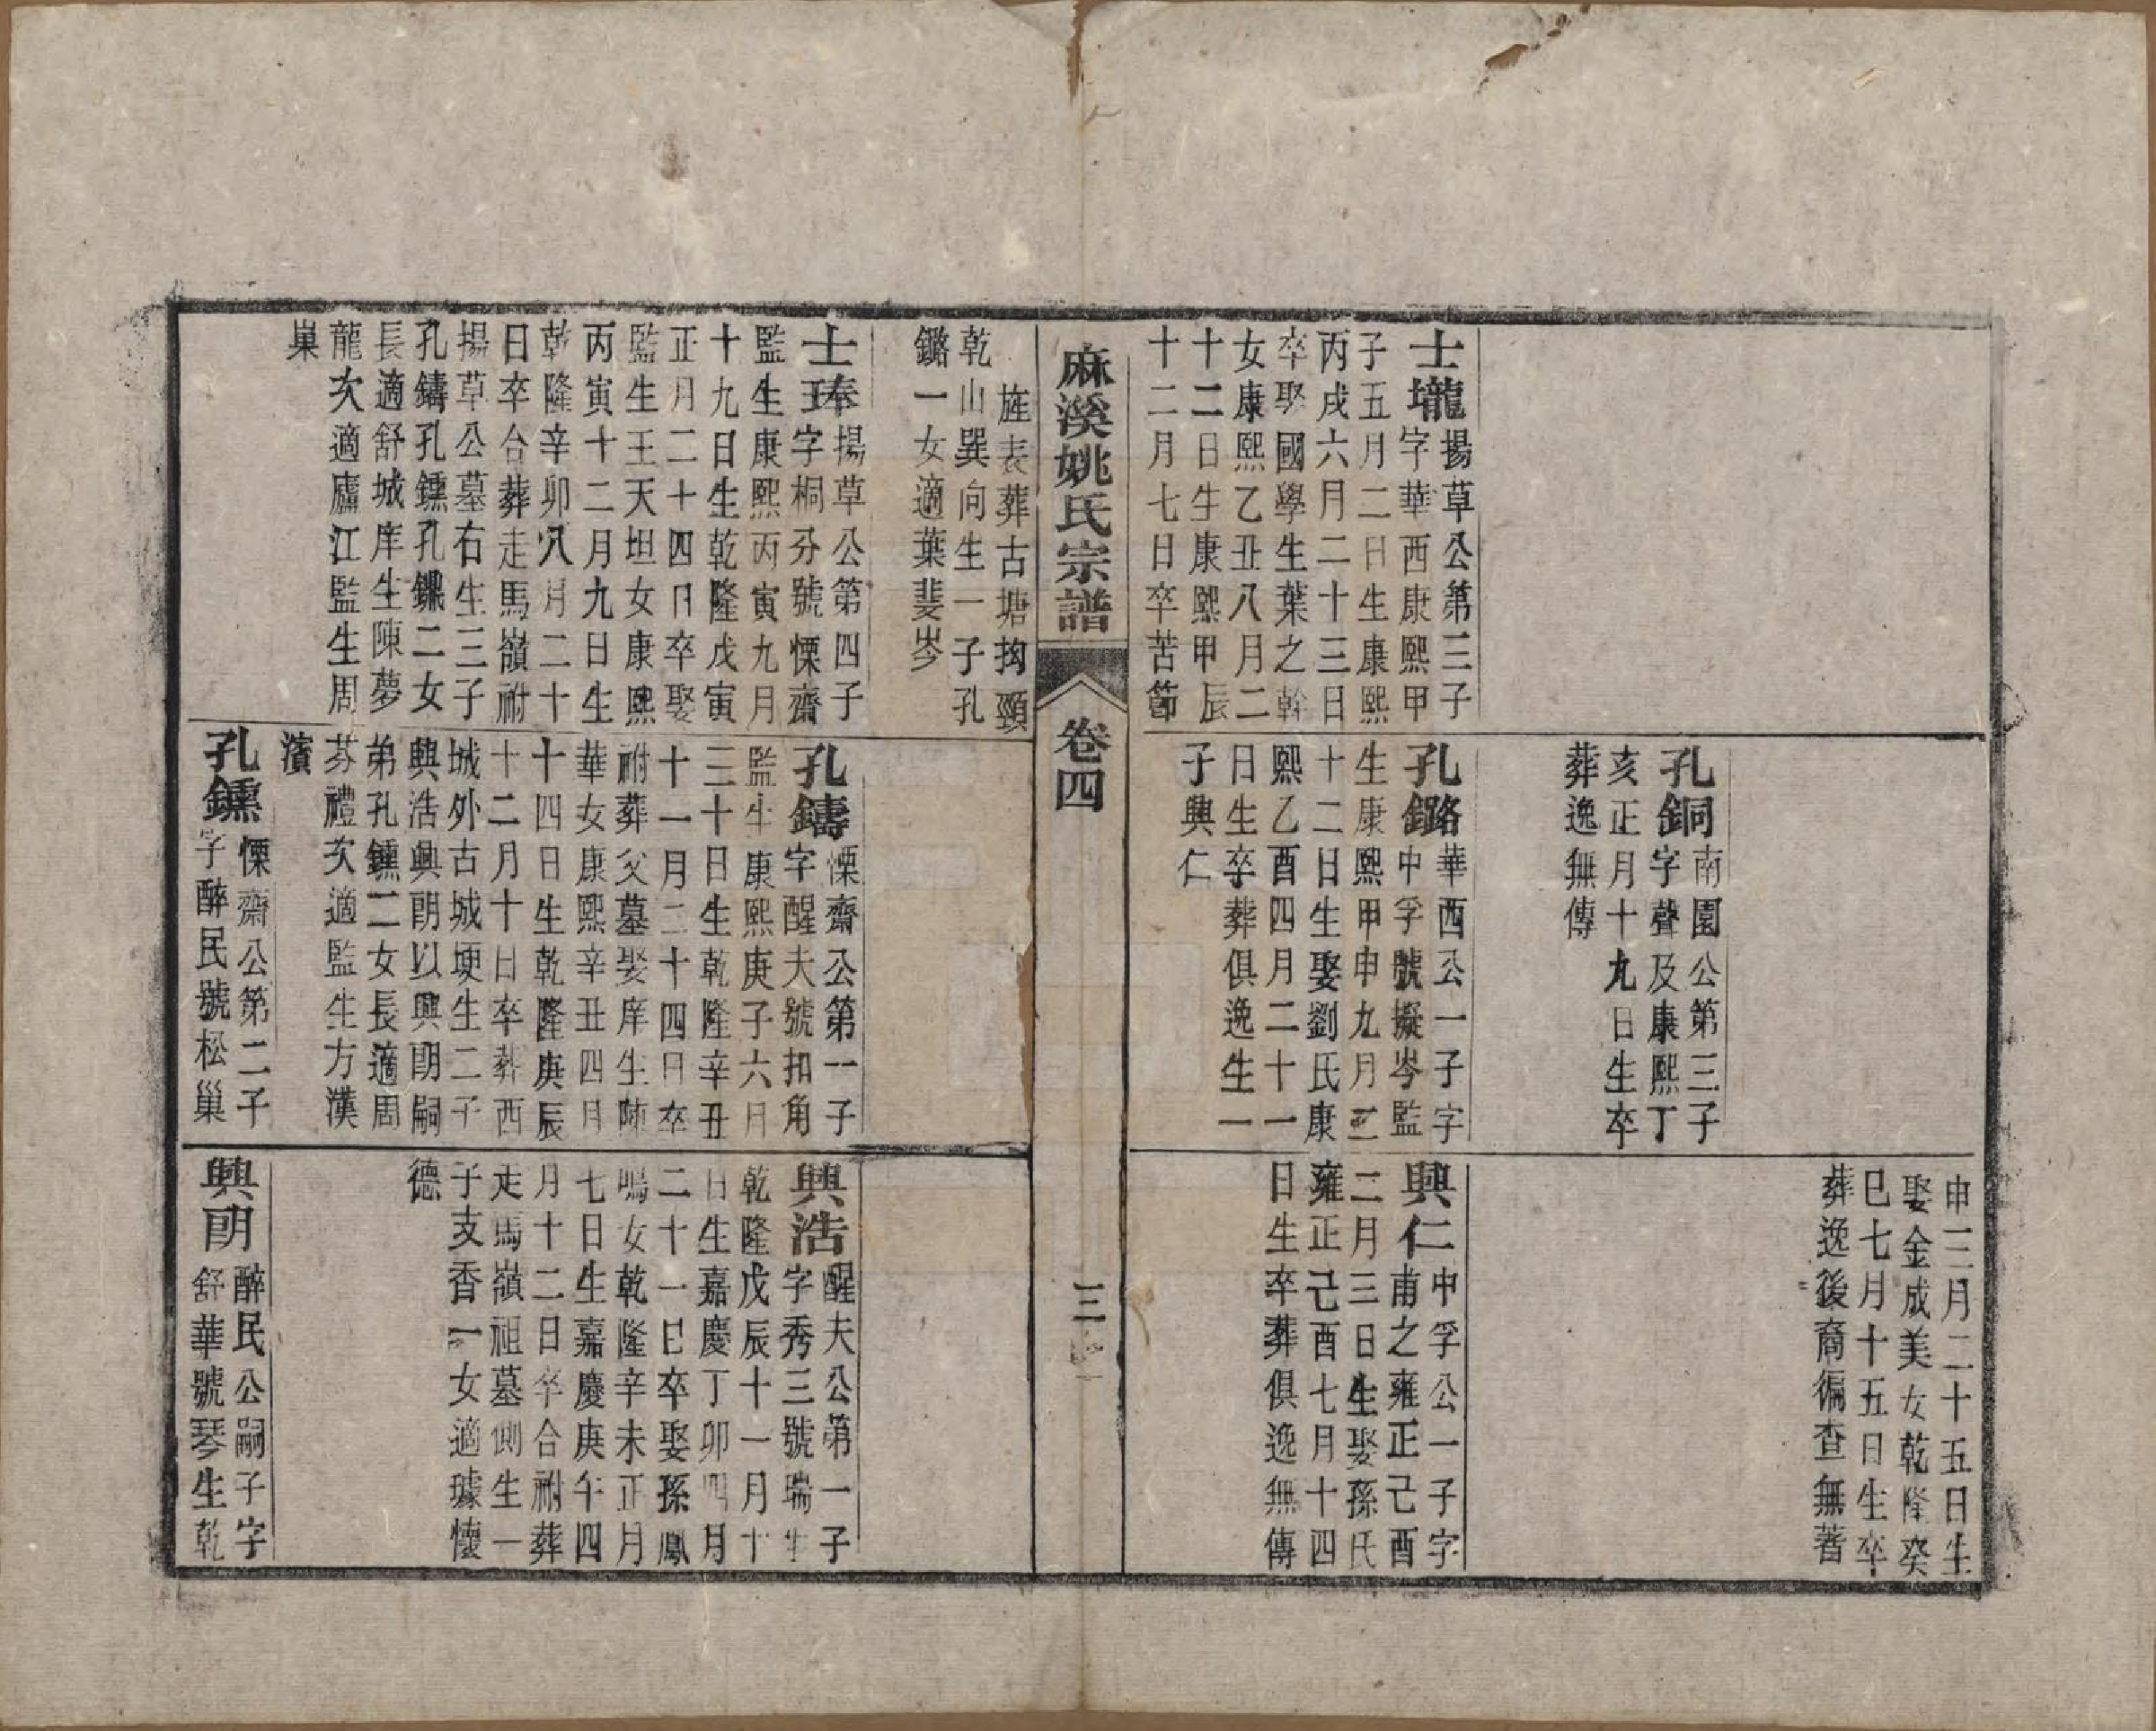 士壠
揚草公第三子
字華西康熙甲
子五月二日生康熙
丙戌六月二十三日
卒娶國學生葉之幹
女康熙乙丑八月二
十二日生康熙甲辰
十二月七日卒苦節
孔銅
南園公第三子
字聲及康熙丁
亥正月十九日生卒
葬逸無傳
孔鏴
華西公一子字
中孚號擬岑監
生康熙甲申九月三
十二日生娶劉氏康
熙乙酉四月二十一
日生卒葬俱逸生一
子興仁
申三月二十五日生
娶金成美女乾隆癸
巳七月十五日生卒
葬逸後裔徧查無著
興仁
中孚公一子字
甫之雍正己酉
二月三日生娶孫氏
雍正己酉七月十四
日生卒葬俱逸無傳
麻溪姚氏宗譜
卷四
三
旌表葬古塘拘頸
乾山巽向生一子孔
鏴一女適葉斐岑
士琫
揚草公第四子
字桐芬號慄齋
監生康熙丙寅九月
十九日生乾隆戊寅
正月二十四日卒娶
監生王天坦女康熙
丙寅十二月九日生
乾隆辛卯八月二十
日卒合葬走馬嶺祔
揚草公墓右生三子
孔鑄孔鑂孔鑠二女
長適舒城庠生陳夢
龍次適廬江監生周
巢
孔鑄
慄齋公第一子
字醒夫號扣角
監生康熙庚子六月
三十日生乾隆辛丑
十一月二十四日卒
祔葬父墓娶庠生陳
華女康熙辛丑四月
十四日生乾隆庚辰
十二月十日卒葬西
城外古城埂生二子
興浩興朗以興朗嗣
弟孔鑂二女長適周
芬禮次適監生方漢
濱
孔鑂
慄齋公第二子
字醉民號松巢
興浩
醒夫公第一子
字秀三號瑞生
乾隆戊辰十一月十
日生嘉慶丁卯四月
二十一日卒娶孫鳳
鳴女乾隆辛未正月
七日生嘉慶庚午四
月十二日卒合祔葬
走馬嶺祖墓側生一
子支香一女適璩懷
德
興朗
醉民公嗣子字
舒華號琴生乾